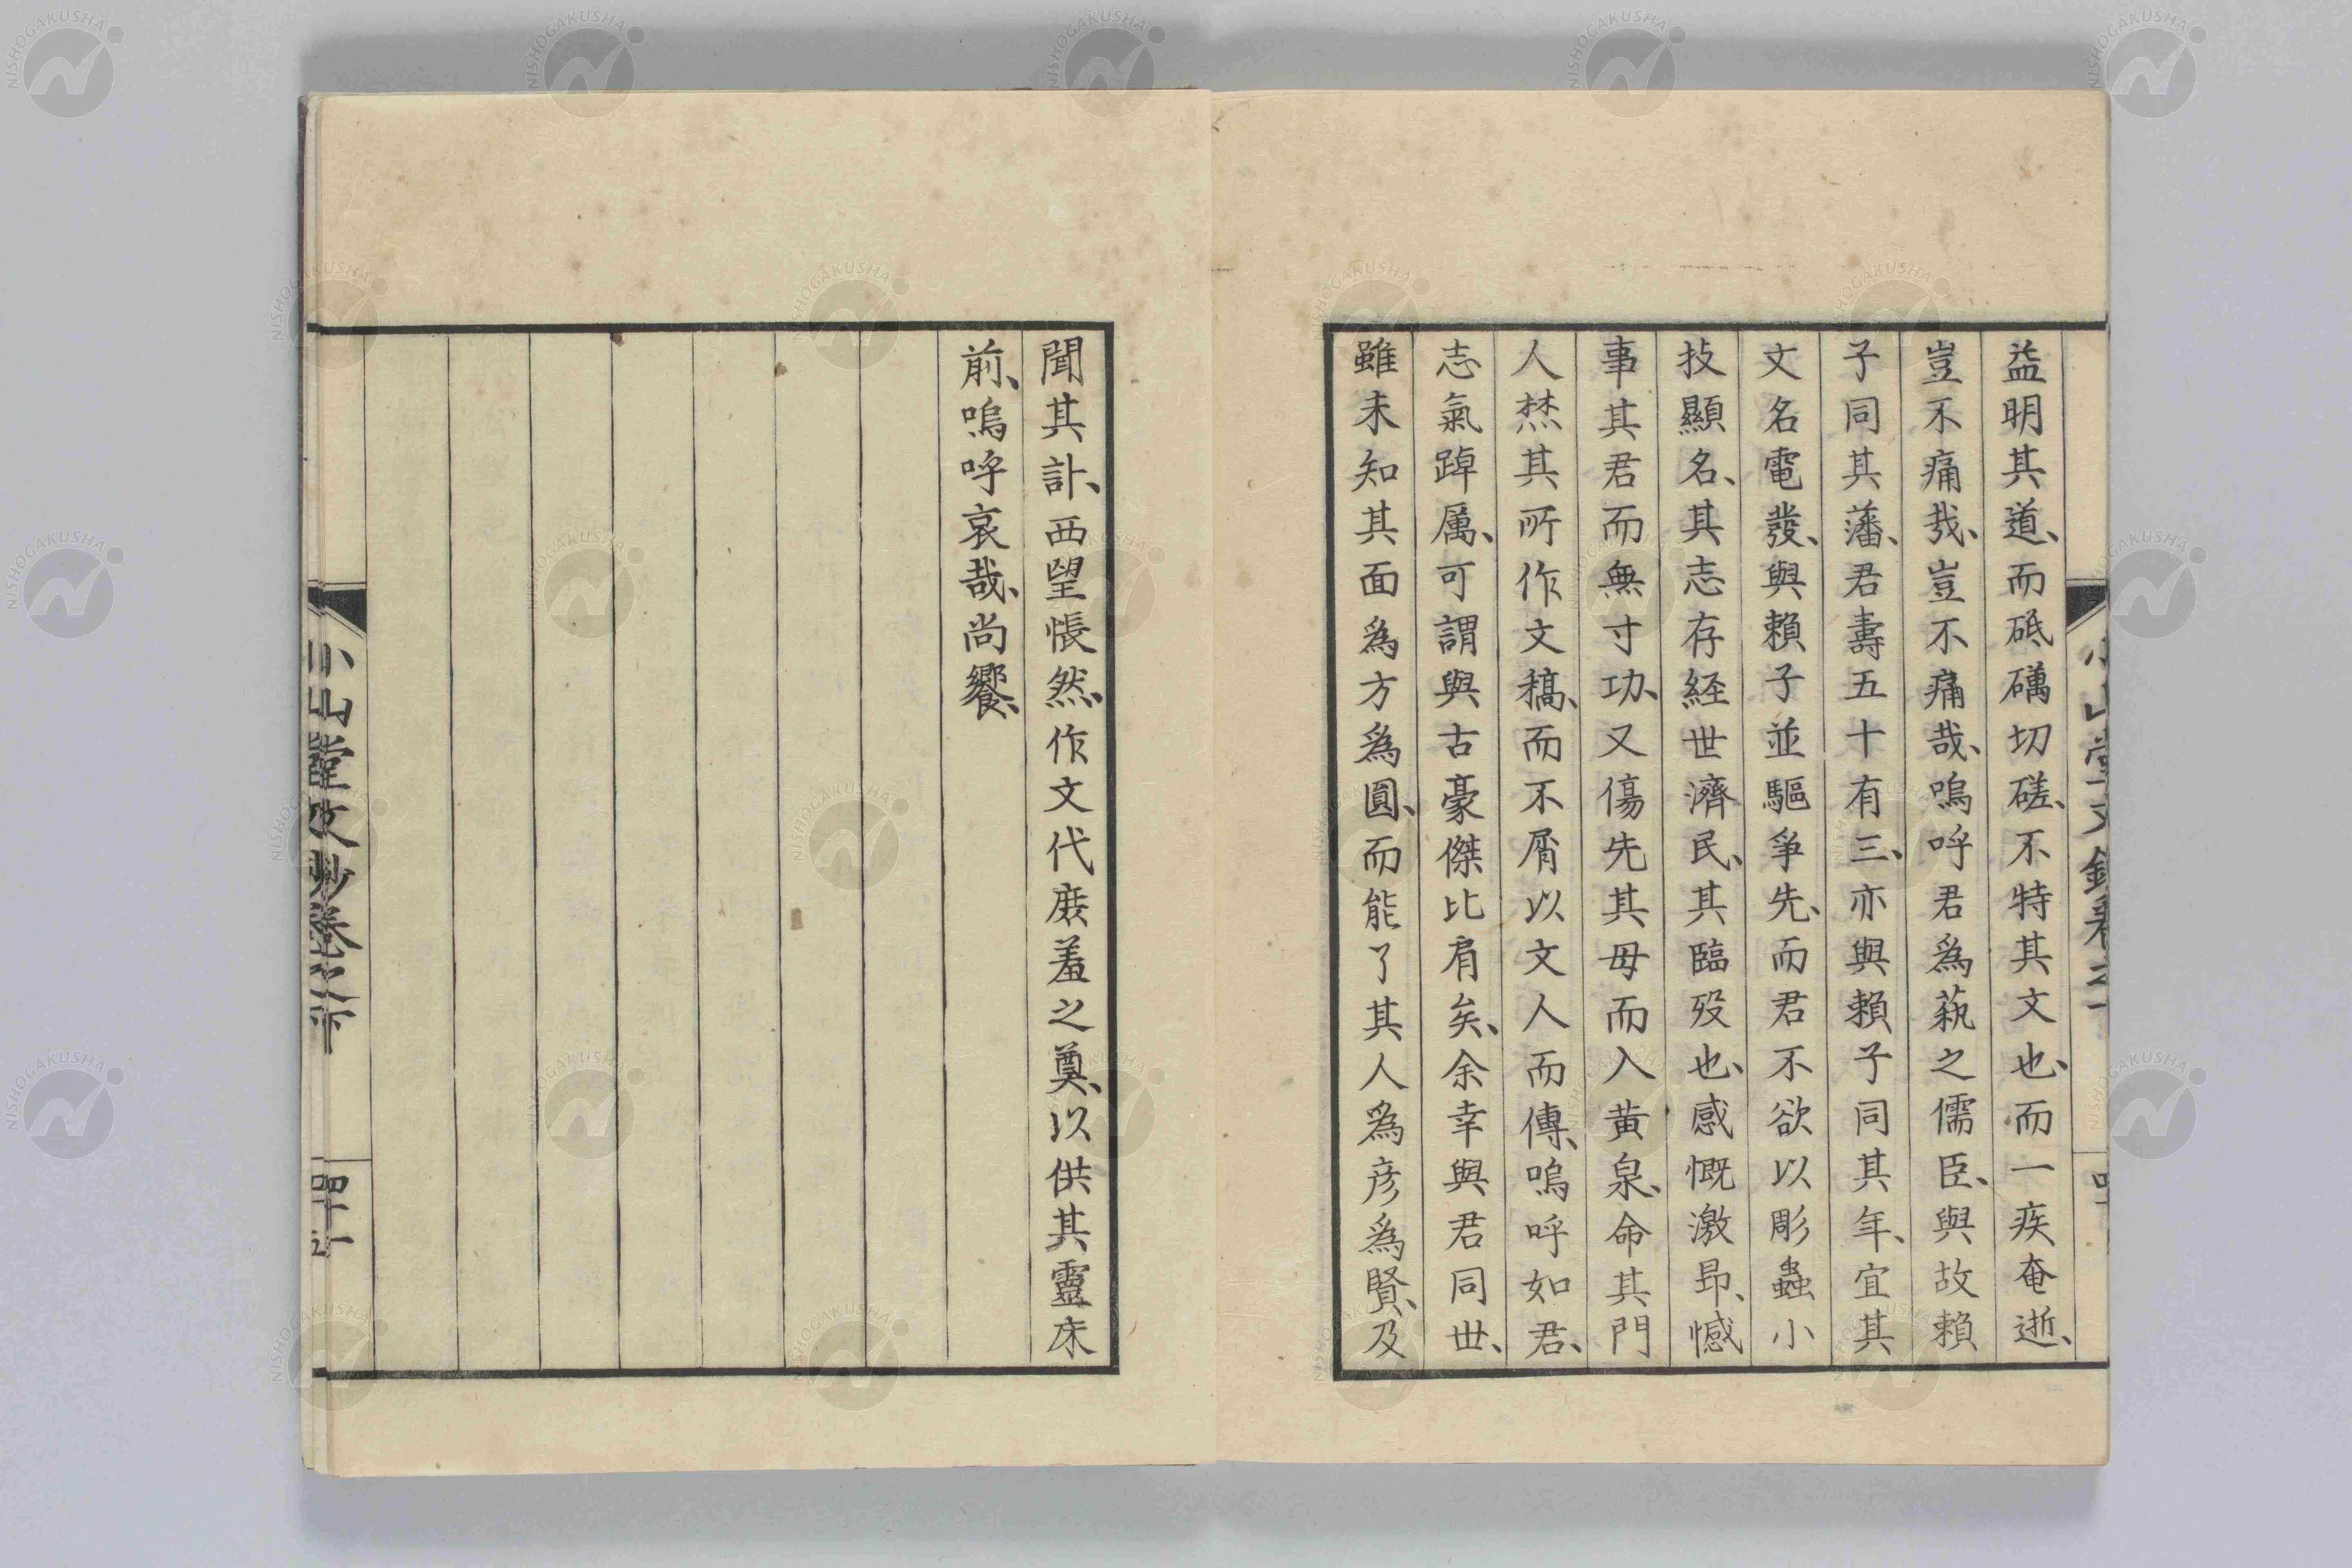 益明其道、而砥礪切磋、不特其文也、而一疾奄逝、
豈不痛哉、豈不痛哉、嗚呼君爲蓺之儒臣、與故賴
子同其藩、君壽五十有三、亦與賴子同其年、宜其
文名電發、與賴子並驅爭先、而君不欲以彫蟲小
技顯名、其志存経世濟民、其臨歿也、感慨激昂、憾
事其君而無寸功、又傷先其母而入黄泉、命其門
人焚其所作文稿、而不屑以文人而傳、嗚呼如君、
志氣踔厲、可謂與古豪傑比肩矣、余幸與君同世、
雖未知其面爲方爲圓、而能了其人爲彦爲賢、及
聞其訃、西望悵然、作文代庶羞之奠、以供其靈床
前、嗚呼哀哉、尚饗、
小山堂文鈔卷之下
NISHOGAKUSHA